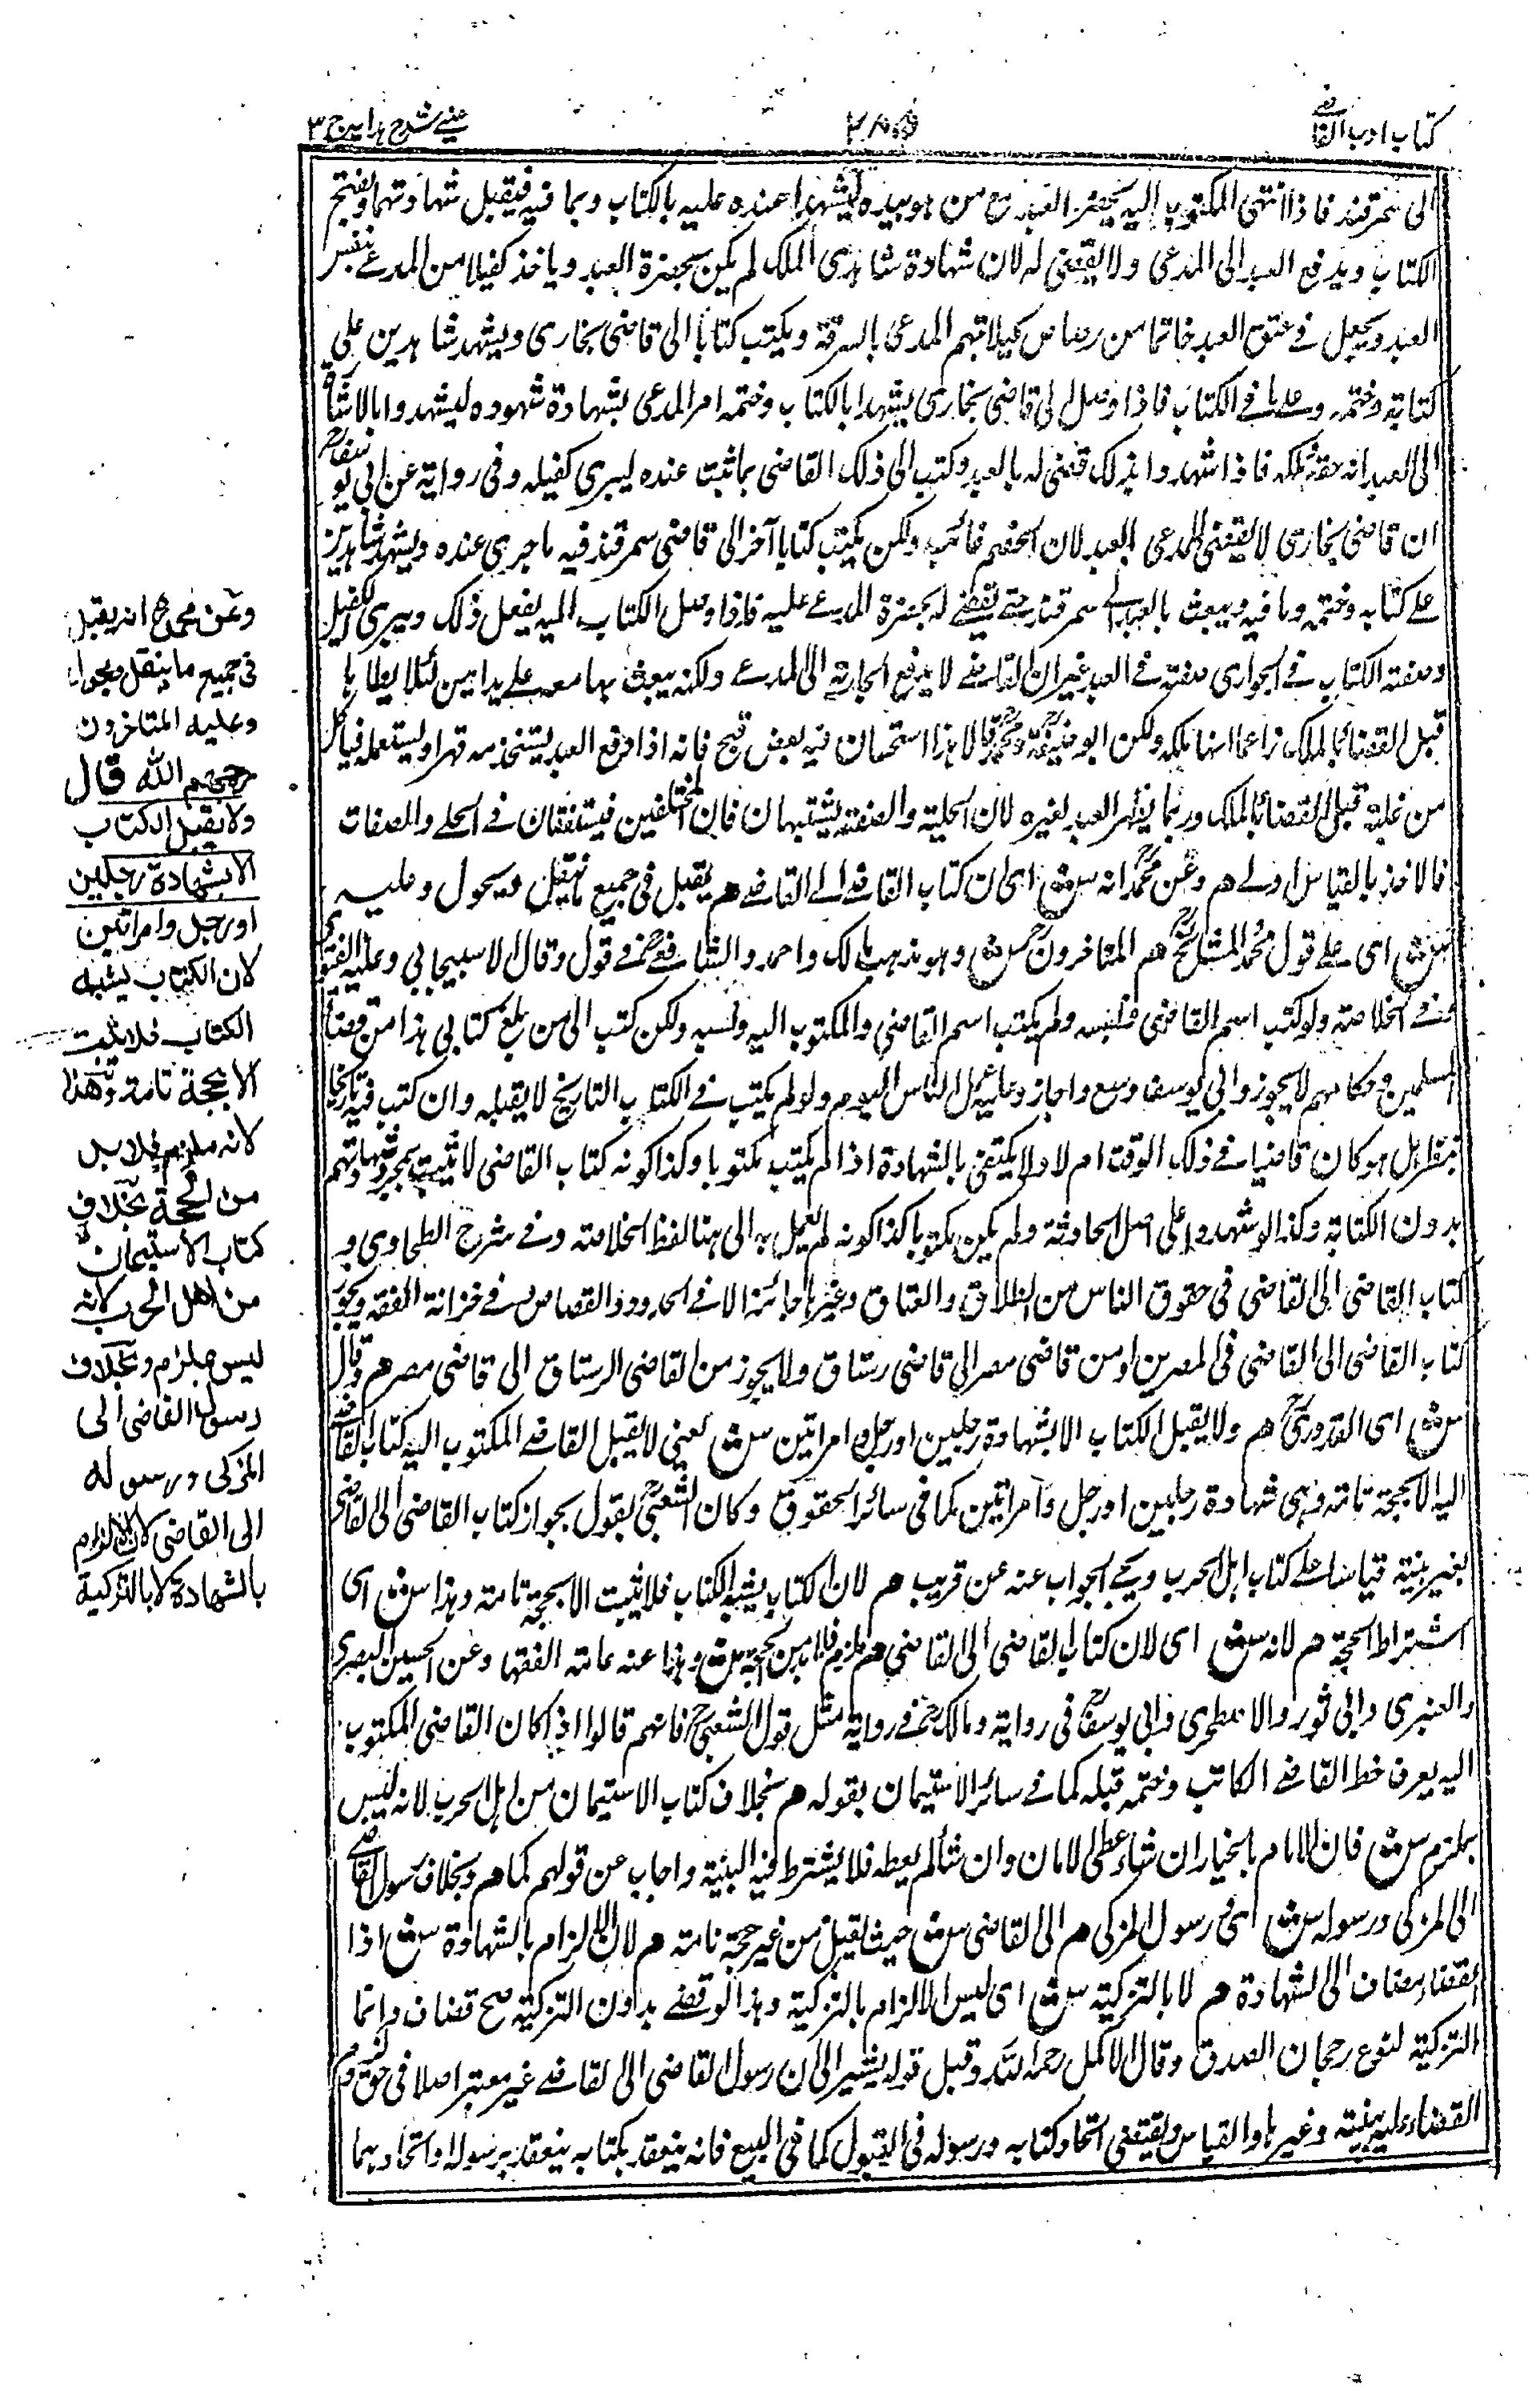 كتاب ادب القاضے
عينے شرح هدايه ج ٣
الى سمرقند فاذا انتهى المكتوب اليه يحضر العبد مع من هو بيده ليشهدا عنده عليه بالكتاب وبما فيه فيقبل شهادتهما ويفتح
الكتاب ويدفع العبد الى المدعى ولا يقضى له لان شهادة شاهدى الملك لم يكن بحضرة العبد وياخذ كفيلا من المدعے بنفس
العبد ويجعل فے عنق العبد خاتما من رصاص كيلا يتهم المدعى بالسرقة ويكتب كتابا الى قاضى بخارى ويشهد شاهدين على
كتابه وختمه وعلى ما فے الكتاب فاذا وصل الى قاضى بخارى يشهدا بالكتاب وختمه امر المدعى بشهادة شهوده ليشهدوا بالاشارة
الى العبد انه حقه وملكه فاذا شهدوا بذلك قضى له بالعبد وكتب الى ذلك القاضى بما ثبت عنده ليبرى كفيله وفى رواية عن ابى يوسف
ان قاضى بخارى لا يقضى للمدعى بالعبد لان الخصم غائب ولكن يكتب كتابا آخر الى قاضى سمرقند فيه ما جرى عنده ويشهد شاهدين
علے كتابه وختمه وما فيه ويبعث بالعبد الى سمرقند حتے يقضے له بحضرة المدعے عليه فاذا وصل الكتاب اليه يفعل ذلك ويبرى الكفيل
وصفة الكتاب فے الجوارى صفته فے العبد غير ان القاضے لا يدفع الجارية الى المدعے ولكنه يبعث بها معه على يد امين لئلا يطاها
قبل القضاء بالملك زاعما انها ملكه ولكن ابو حنيفة ومحمد قالا هذا استحسان فيه بعض قبح فانه اذا دفع العبد يستخدمه قهرا ويستعمله فياكل
من غلته قبل القضاء بالملك وربما يظهر العبد لغيره لان الحلية والصفة يشتبهان فان المختلفين فيستفقان فے الحلے والصفات
فالاخذ بالقياس اولے هم وعن محمد انه سش اى ان كتاب القاضے الى القاضے هم يقبل فى جميع ما ينقل ويحول وعليه
سش اى علے قول محمد المشائخ هم المتاخرون سش وهو مذهب مالك واحمد والشافعے فے قول وقال الاسبيجابى وعليه الفتوى
وفے الخلاصة ولو كتب اسم القاضى ونسبه ولم يكتب اسم القاضى والمكتوب اليه ونسبه ولكن كتب الى من بلغ كتابى هذا من قضاة
المسلمين وحكامهم لا يجوز وابى يوسف وسع واجاز وعليه عمل الناس اليوم ولو لم يكتب فے الكتاب التاريخ لا يقبله وان كتب فيه تاريخا
ينظر هل هو كان قاضيا فے ذلك الوقت ام لا ولا يكتفى بالشهادة اذا لم يكتب مكتوبا وكذا كونه كتاب القاضى لا تثبت بمجرد شهادتهم
بدون الكتابة وكذا لو شهدوا على اصل الحادثة ولم يكن مكتوبا كذا كونه لم يعمل به الى هنا لفظ الخلاصة وفے شرح الطحاوى و
كتاب القاضى الى القاضى فى حقوق الناس من الطلاق والعتاق وغيرها جائز الا فے الحدود والقصاص وفے خزانة الفقه ويجوز
كتاب القاضى الى القاضى فى المصرين او من قاضى مصر الى قاضى رستاق ولا يجوز من القاضى الرستاق الى قاضى مصر هم قال
سش اى القدورى هم ولا يقبل الكتاب الا بشهادة رجلين او رجل وامراتين سش يعنى لا يقبل القاضے المكتوب اليه كتاب القاضے
اليه الا بحجة تامة وهى شهادة رجلين او رجل وامراتين كما فى سائر الحقوق وكان الشعبى يقول بجواز كتاب القاضى الى القاضى
بغير بينة قياسا علے كتاب اهل الحرب ويجے الجواب عنه عن قريب هم لان الكتاب يشبه الكتاب فلا يثبت الا بحجة تامة وهذا سش اى
اشتراط الحجة هم لانه سش اى لان كتاب القاضى الى القاضى هم ملزم فلا بد من الحجة سش وهذا عند عامة الفقها وعن الحسن البصرى
والعنبرى وابى ثور والاصطخرى وابى يوسف فى رواية ومالك فے رواية مثل قول الشعبى فانهم قالوا اذا كان القاضى المكتوب
اليه يعرف خط القاضے الكاتب وختمه قبله كما فے سائر الاستيمان بقوله هم بخلاف كتاب الاستيمان من اهل الحرب لانه ليس
بملزم سش فان الامام بالخيار ان شاء اعطى الامان وان شاء لم يعطه فلا يشترط فيه البينة واجاب عن قولهم كما هم وبخلاف رسول القاضے
الى المزكى ورسوله سش اى رسول المزكى هم الى القاضى سش حيث يقبل من غير حجة تامة هم لان الالزام بالشهادة سش اذا
القضاء مضاف الى الشهادة هم لا بالتزكية سش اى ليس الالزام بالتزكية وهذا لو قضے بدون التزكية صح قضاءه وانما
التزكية لنوع رجحان الصدق وقال الاكمل رحمه الله وقيل قوله يشير الى ان رسول القاضى الى القاضے غير معتبر اصلا فى حق لزوم
القضاء عليه ببينة وغيرها والقياس يقتضى اتحاد كتابه ورسوله فى القبول كما فى البيع فانه ينعقد بكتابه ينعقد برسوله واتحادهما
وعن محمد رح انه يقبل
فى جميع ما ينقل ويحول
وعليه المتاخرون
رحمهم الله قال
ولا يقبل الكتاب
الا بشهادة رجلين
او رجل وامراتين
لان الكتاب يشبه
الكتاب فلا يثبت
الا بحجة تامة وهذا
لانه ملزم فلا بد
من الحجة بخلاف
كتاب الاستيمان
من اهل الحرب لانه
ليس بملزم وبخلاف
رسول القاضى الى
المزكى ورسوله
الى القاضى لان الالزام
بالشهادة لا بالتزكية